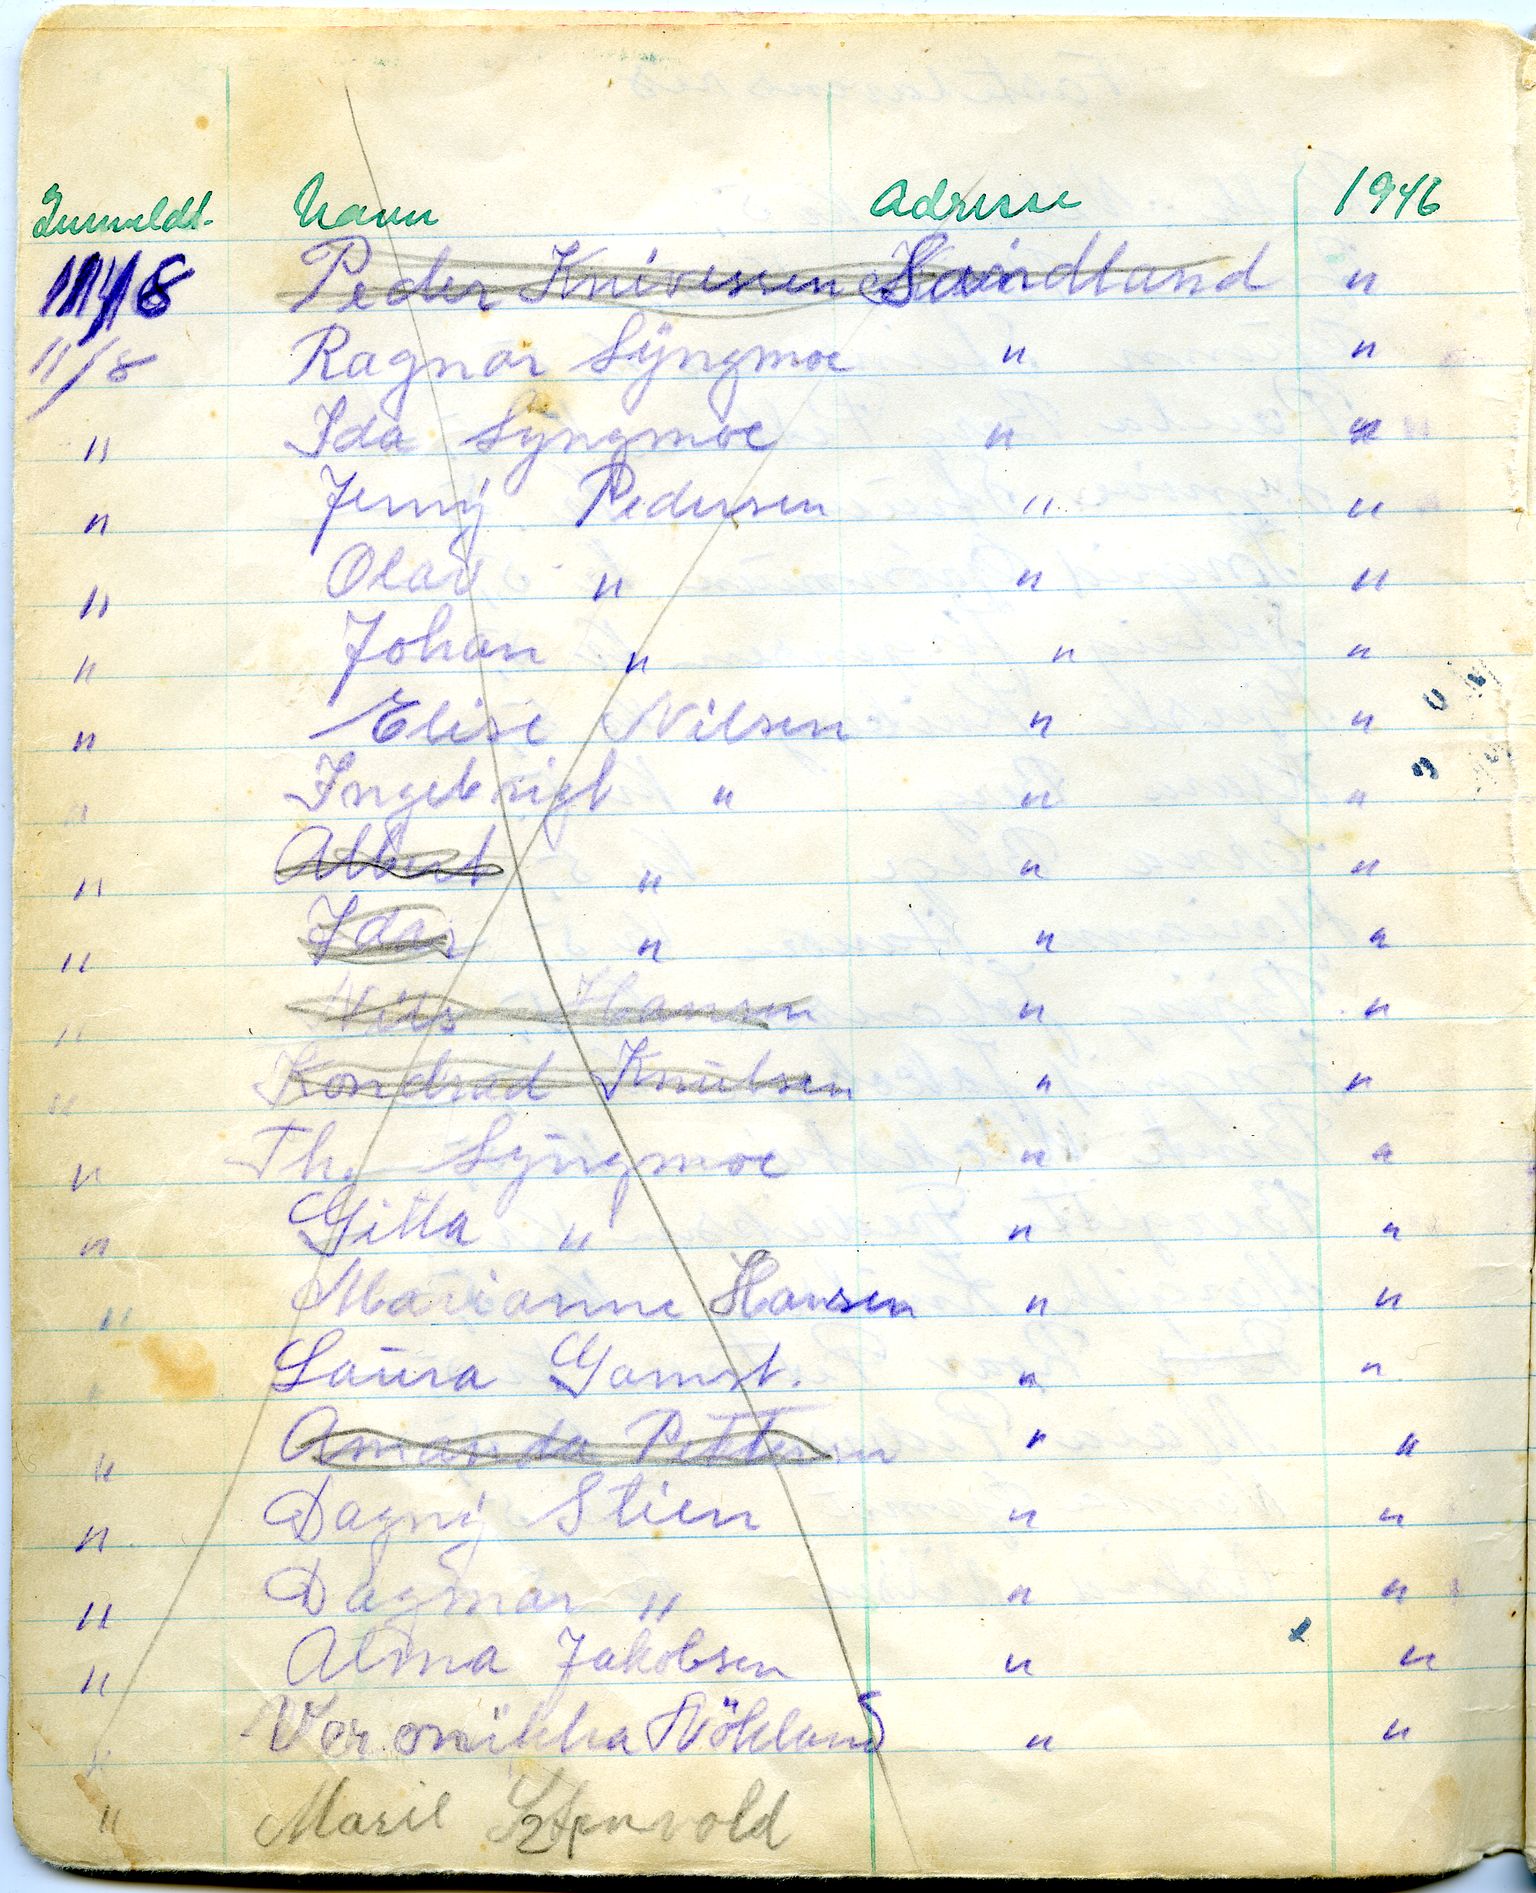 Innmeldt. Navn Adresse 1946
11/8 Peder Knivessen Sandland "
11/8 Ragnar Lyngmoe " "
" Ida Lyngmoe " "
" Jenny Pedersen " "
" Olav " " "
" Johan " " "
" Elise Nilsen " "
" Ingebrigt " " "
" Albert " " "
" Idar " " "
" Nils Hansen " "
" Kondrad Knutsen " "
" Th. Lyngmoe " "
" Gitta " " "
" Marianne Hansen " "
" Laura Gamst. " "
" Amanda Pettersen " "
" Dagny Stien " "
" Dagmar " " "
" Alma Jakobsen " "
" Veronikka Kökland " "
" Marie